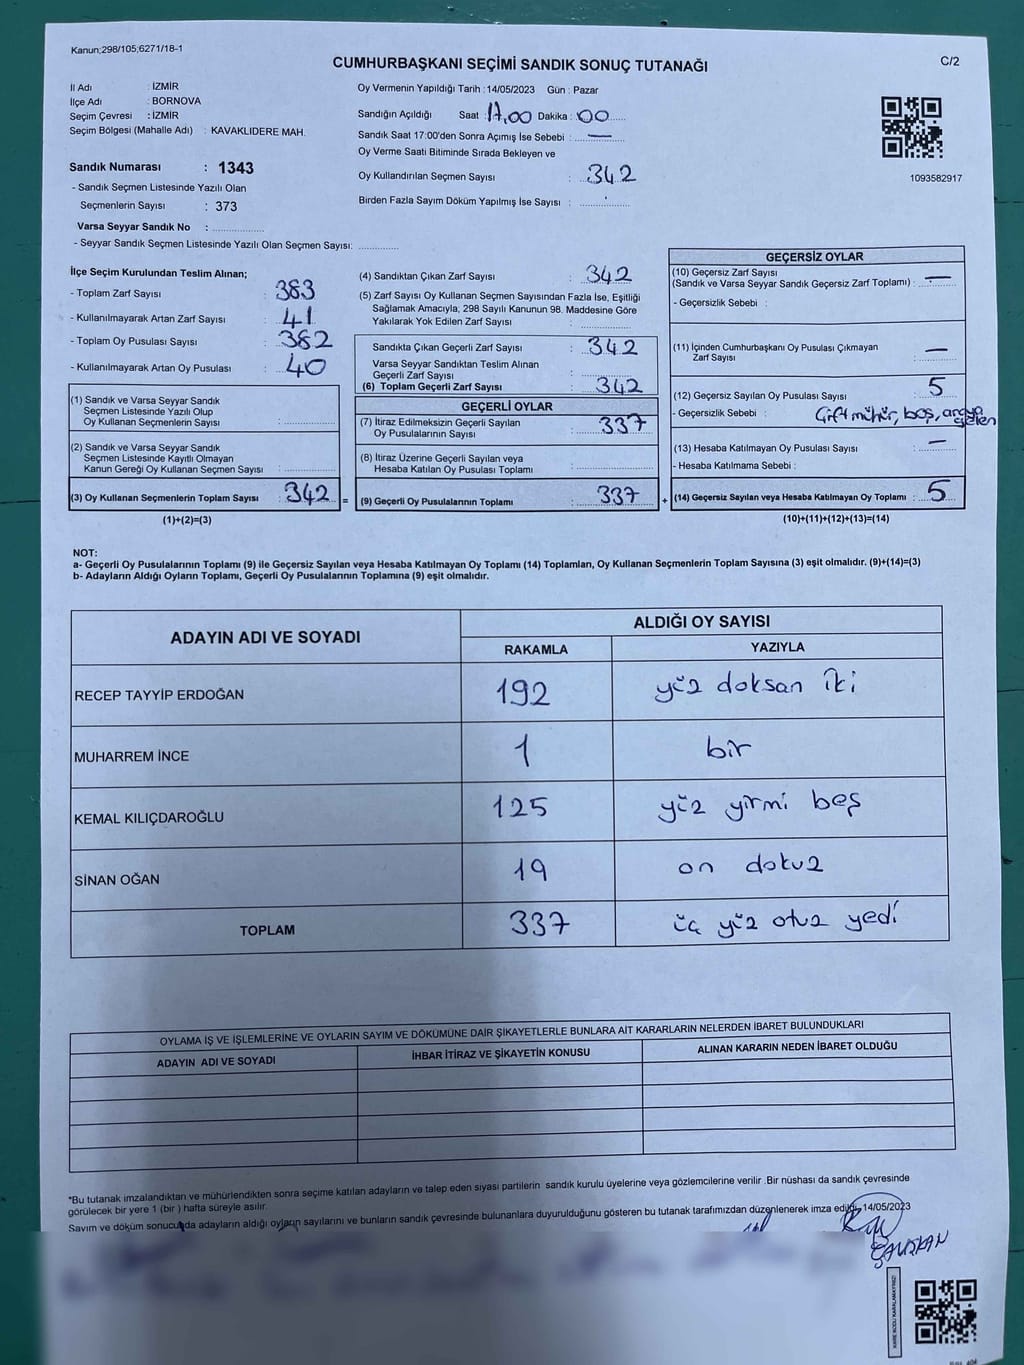 Kanun;298/105;6271/18-1
CUMHURBAŞKANI SEÇİMİ SANDIK SONUÇ TUTANAĞI
C/2
İl Adı : İZMİR
İlçe Adı : BORNOVA
Seçim Çevresi : İZMİR
Seçim Bölgesi (Mahalle Adı) : KAVAKLIDERE MAH.
Sandık Numarası : 1343
- Sandık Seçmen Listesinde Yazılı Olan
Seçmenlerin Sayısı : 373
Varsa Seyyar Sandık No : ..............
- Seyyar Sandık Seçmen Listesinde Yazılı Olan Seçmen Sayısı: ............
Oy Vermenin Yapıldığı Tarih : 14/05/2023 Gün : Pazar
Sandığın Açıldığı Saat : 17,00 Dakika : 00
Sandık Saat 17:00'den Sonra Açımış İse Sebebi : —
Oy Verme Saati Bitiminde Sırada Bekleyen ve
Oy Kullandırılan Seçmen Sayısı : 342
Birden Fazla Sayım Döküm Yapılmış İse Sayısı : ..............
1093582917
İlçe Seçim Kurulundan Teslim Alınan;
- Toplam Zarf Sayısı : 383
- Kullanılmayarak Artan Zarf Sayısı : 41
- Toplam Oy Pusulası Sayısı : 382
- Kullanılmayarak Artan Oy Pusulası : 40
(1) Sandık ve Varsa Seyyar Sandık
Seçmen Listesinde Yazılı Olup
Oy Kullanan Seçmenlerin Sayısı : ..............
(2) Sandık ve Varsa Seyyar Sandık
Seçmen Listesinde Kayıtlı Olmayan
Kanun Gereği Oy Kullanan Seçmen Sayısı : ..............
(3) Oy Kullanan Seçmenlerin Toplam Sayısı : 342 =
(1)+(2)=(3)
(4) Sandıktan Çıkan Zarf Sayısı : 342
(5) Zarf Sayısı Oy Kullanan Seçmen Sayısından Fazla İse, Eşitliği
Sağlamak Amacıyla; 298 Sayılı Kanunun 98. Maddesine Göre
Yakılarak Yok Edilen Zarf Sayısı : ..............
Sandıkta Çıkan Geçerli Zarf Sayısı : 342
Varsa Seyyar Sandıktan Teslim Alınan
Geçerli Zarf Sayısı : ..............
(6) Toplam Geçerli Zarf Sayısı : 342
GEÇERLİ OYLAR
(7) İtiraz Edilmeksizin Geçerli Sayılan
Oy Pusulalarının Sayısı : 337
(8) İtiraz Üzerine Geçerli Sayılan ve
Hesaba Katılan Oy Pusulası Toplamı : ..............
(9) Geçerli Oy Pusulalarının Toplamı : 337 +
GEÇERSİZ OYLAR
(10) Geçersiz Zarf Sayısı
(Sandık ve Varsa Seyyar Sandık Geçersiz Zarf Toplamı) : —
- Geçersizlik Sebebi :
(11) İçinden Cumhurbaşkanı Oy Pusulası Çıkmayan
Zarf Sayısı : —
(12) Geçersiz Sayılan Oy Pusulası Sayısı : 5
- Geçersizlik Sebebi : Çift mühür, boş,
(13) Hesaba Katılmayan Oy Pusulası Sayısı : —
- Hesaba Katılmama Sebebi :
(14) Geçersiz Sayılan veya Hesaba Katılmayan Oy Toplamı : 5
(10)+(11)+(12)+(13)=(14)
NOT:
a- Geçerli Oy Pusulalarının Toplamı (9) ile Geçersiz Sayılan veya Hesaba Katılmayan Oy Toplamı (14) Toplamları, Oy Kullanan Seçmenlerin Toplam Sayısına (3) eşit olmalıdır. (9)+(14)=(3)
b- Adayların Aldığı Oyların Toplamı, Geçerli Oy Pusulalarının Toplamına (9) eşit olmalıdır.
ADAYIN ADI VE SOYADI
ALDIĞI OY SAYISI
RAKAMLA YAZIYLA
RECEP TAYYİP ERDOĞAN 192 yüz doksan iki
MUHARREM İNCE 1 bir
KEMAL KILIÇDAROĞLU 125 yüz yirmi beş
SİNAN OĞAN 19 on dokuz
TOPLAM 337 üç yüz otuz yedi
OYLAMA İŞ VE İŞLEMLERİNE VE OYLARIN SAYIM VE DÖKÜMÜNE DAİR ŞİKAYETLERLE BUNLARA AİT KARARLARIN NELERDEN İBARET BULUNDUKLARI
ADAYIN ADI VE SOYADI İHBAR İTİRAZ VE ŞİKAYETİN KONUSU ALINAN KARARIN NEDEN İBARET OLDUĞU
*Bu tutanak imzalandıktan ve mühürlendikten sonra seçime katılan adayların ve talep eden siyasi partilerin sandık kurulu üyelerine veya gözlemcilerine verilir .Bir nüshası da sandık çevresinde
görülecek bir yere 1 (bir ) hafta süreyle asılır.
Sayım ve döküm sonucunda adayların aldığı oyların sayılarını ve bunların sandık çevresinde bulunanlara duyurulduğunu gösteren bu tutanak tarafımızdan düzenlenerek imza edildi. 14/05/2023
KARE KODU KARALAMAYINIZ!